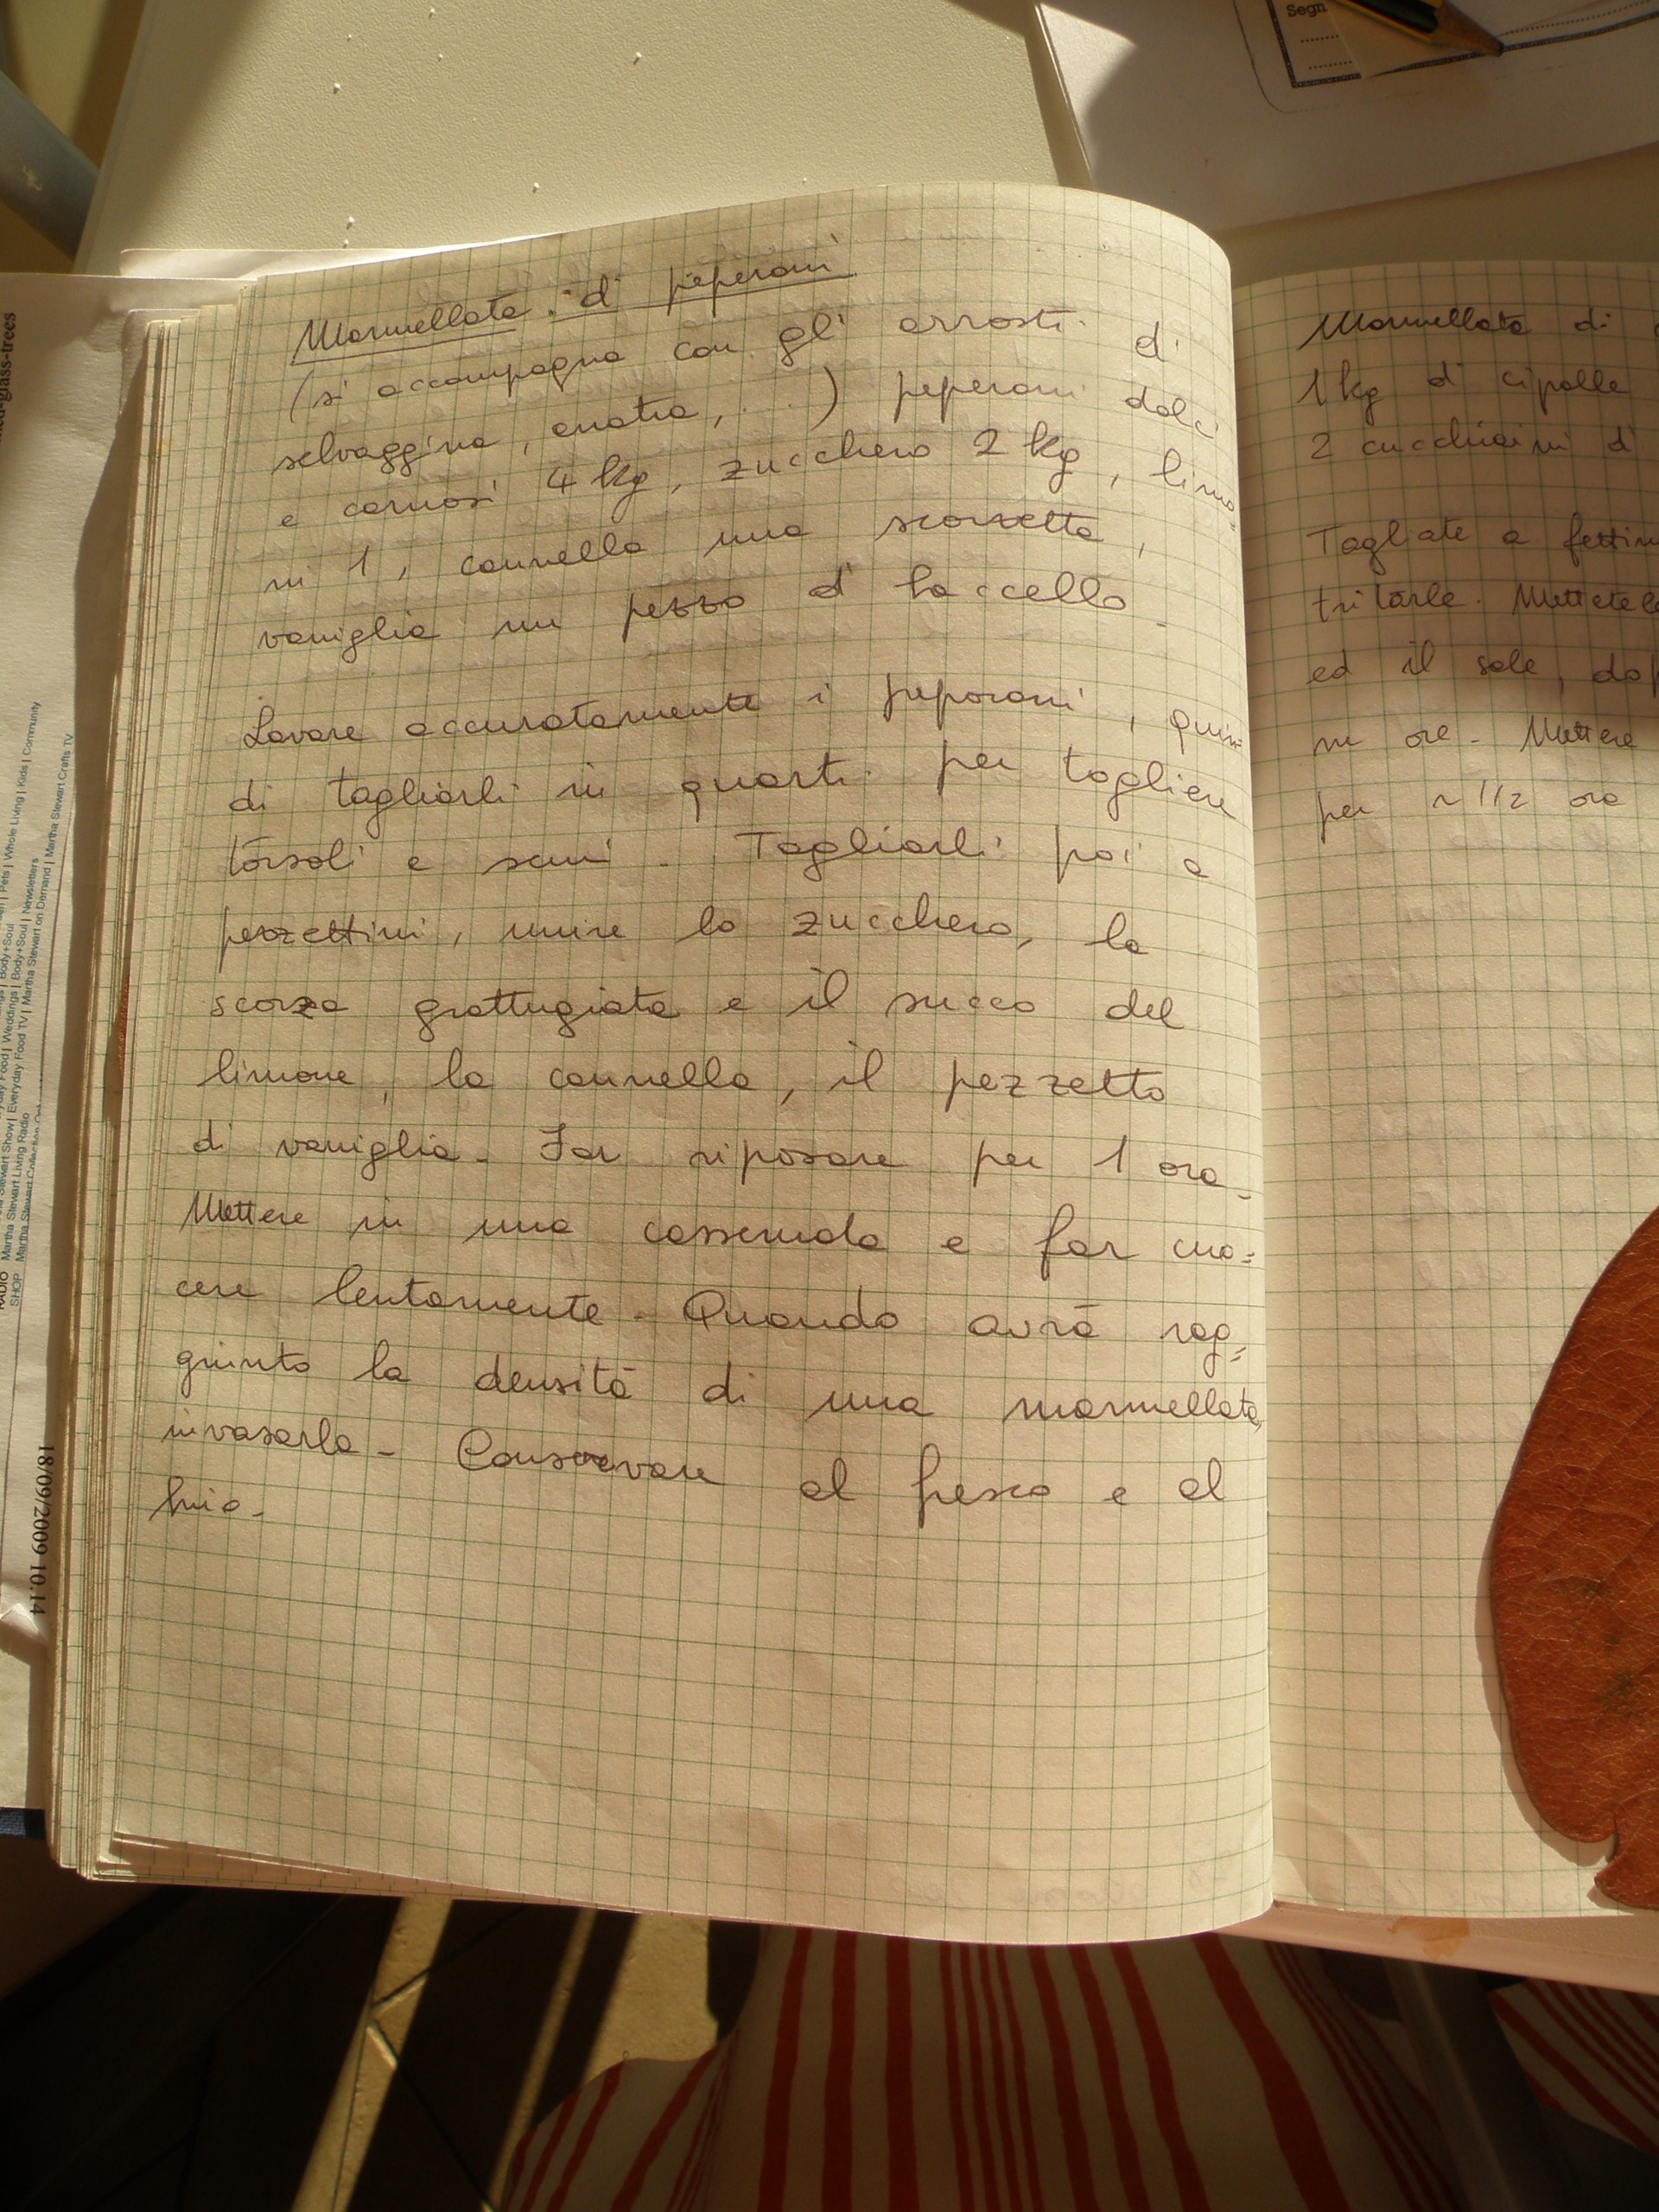 Marmellata di peperoni
(si accompagna con gli arrosti di
selvaggina, anatra, ...) peperoni dolci
e carnosi 4 kg, zucchero 2 kg, limo=
ni 1, cannella una scorzetta,
vaniglia un pezzo di baccello.
Lavare accuratamente i peporoni, quin=
di tagliarli in quarti per togliere
torsoli e semi. Tagliarli poi a
pezzettini, unire lo zucchero, la
scorza grattugiata e il succo del
limone, la cannella, il pezzetto
di vaniglia. Far riposare per 1 ora.
Mettere in una casseruola e far cuo=
cere lentamente. Quando avrà rag=
giunto la densità di una marmellata,
invasarla. Conservare al fresco e al
buio.
Marmellata di
1 kg di cipolle
2 cucchiaini di
Tagliate a fettin
tritarle. Mettetele
ed il sale, dop
ore. Mettere
per ~ 1 1/2 ora
Segn
18/09/2009 10.14
ed-glass-trees
Pets | Whole Living | Kids | Community
Body+Soul | Newsletters
Martha Stewart on Demand | Martha Stewart Crafts TV
Martha Stewart Living Radio
RADIO
SHOP